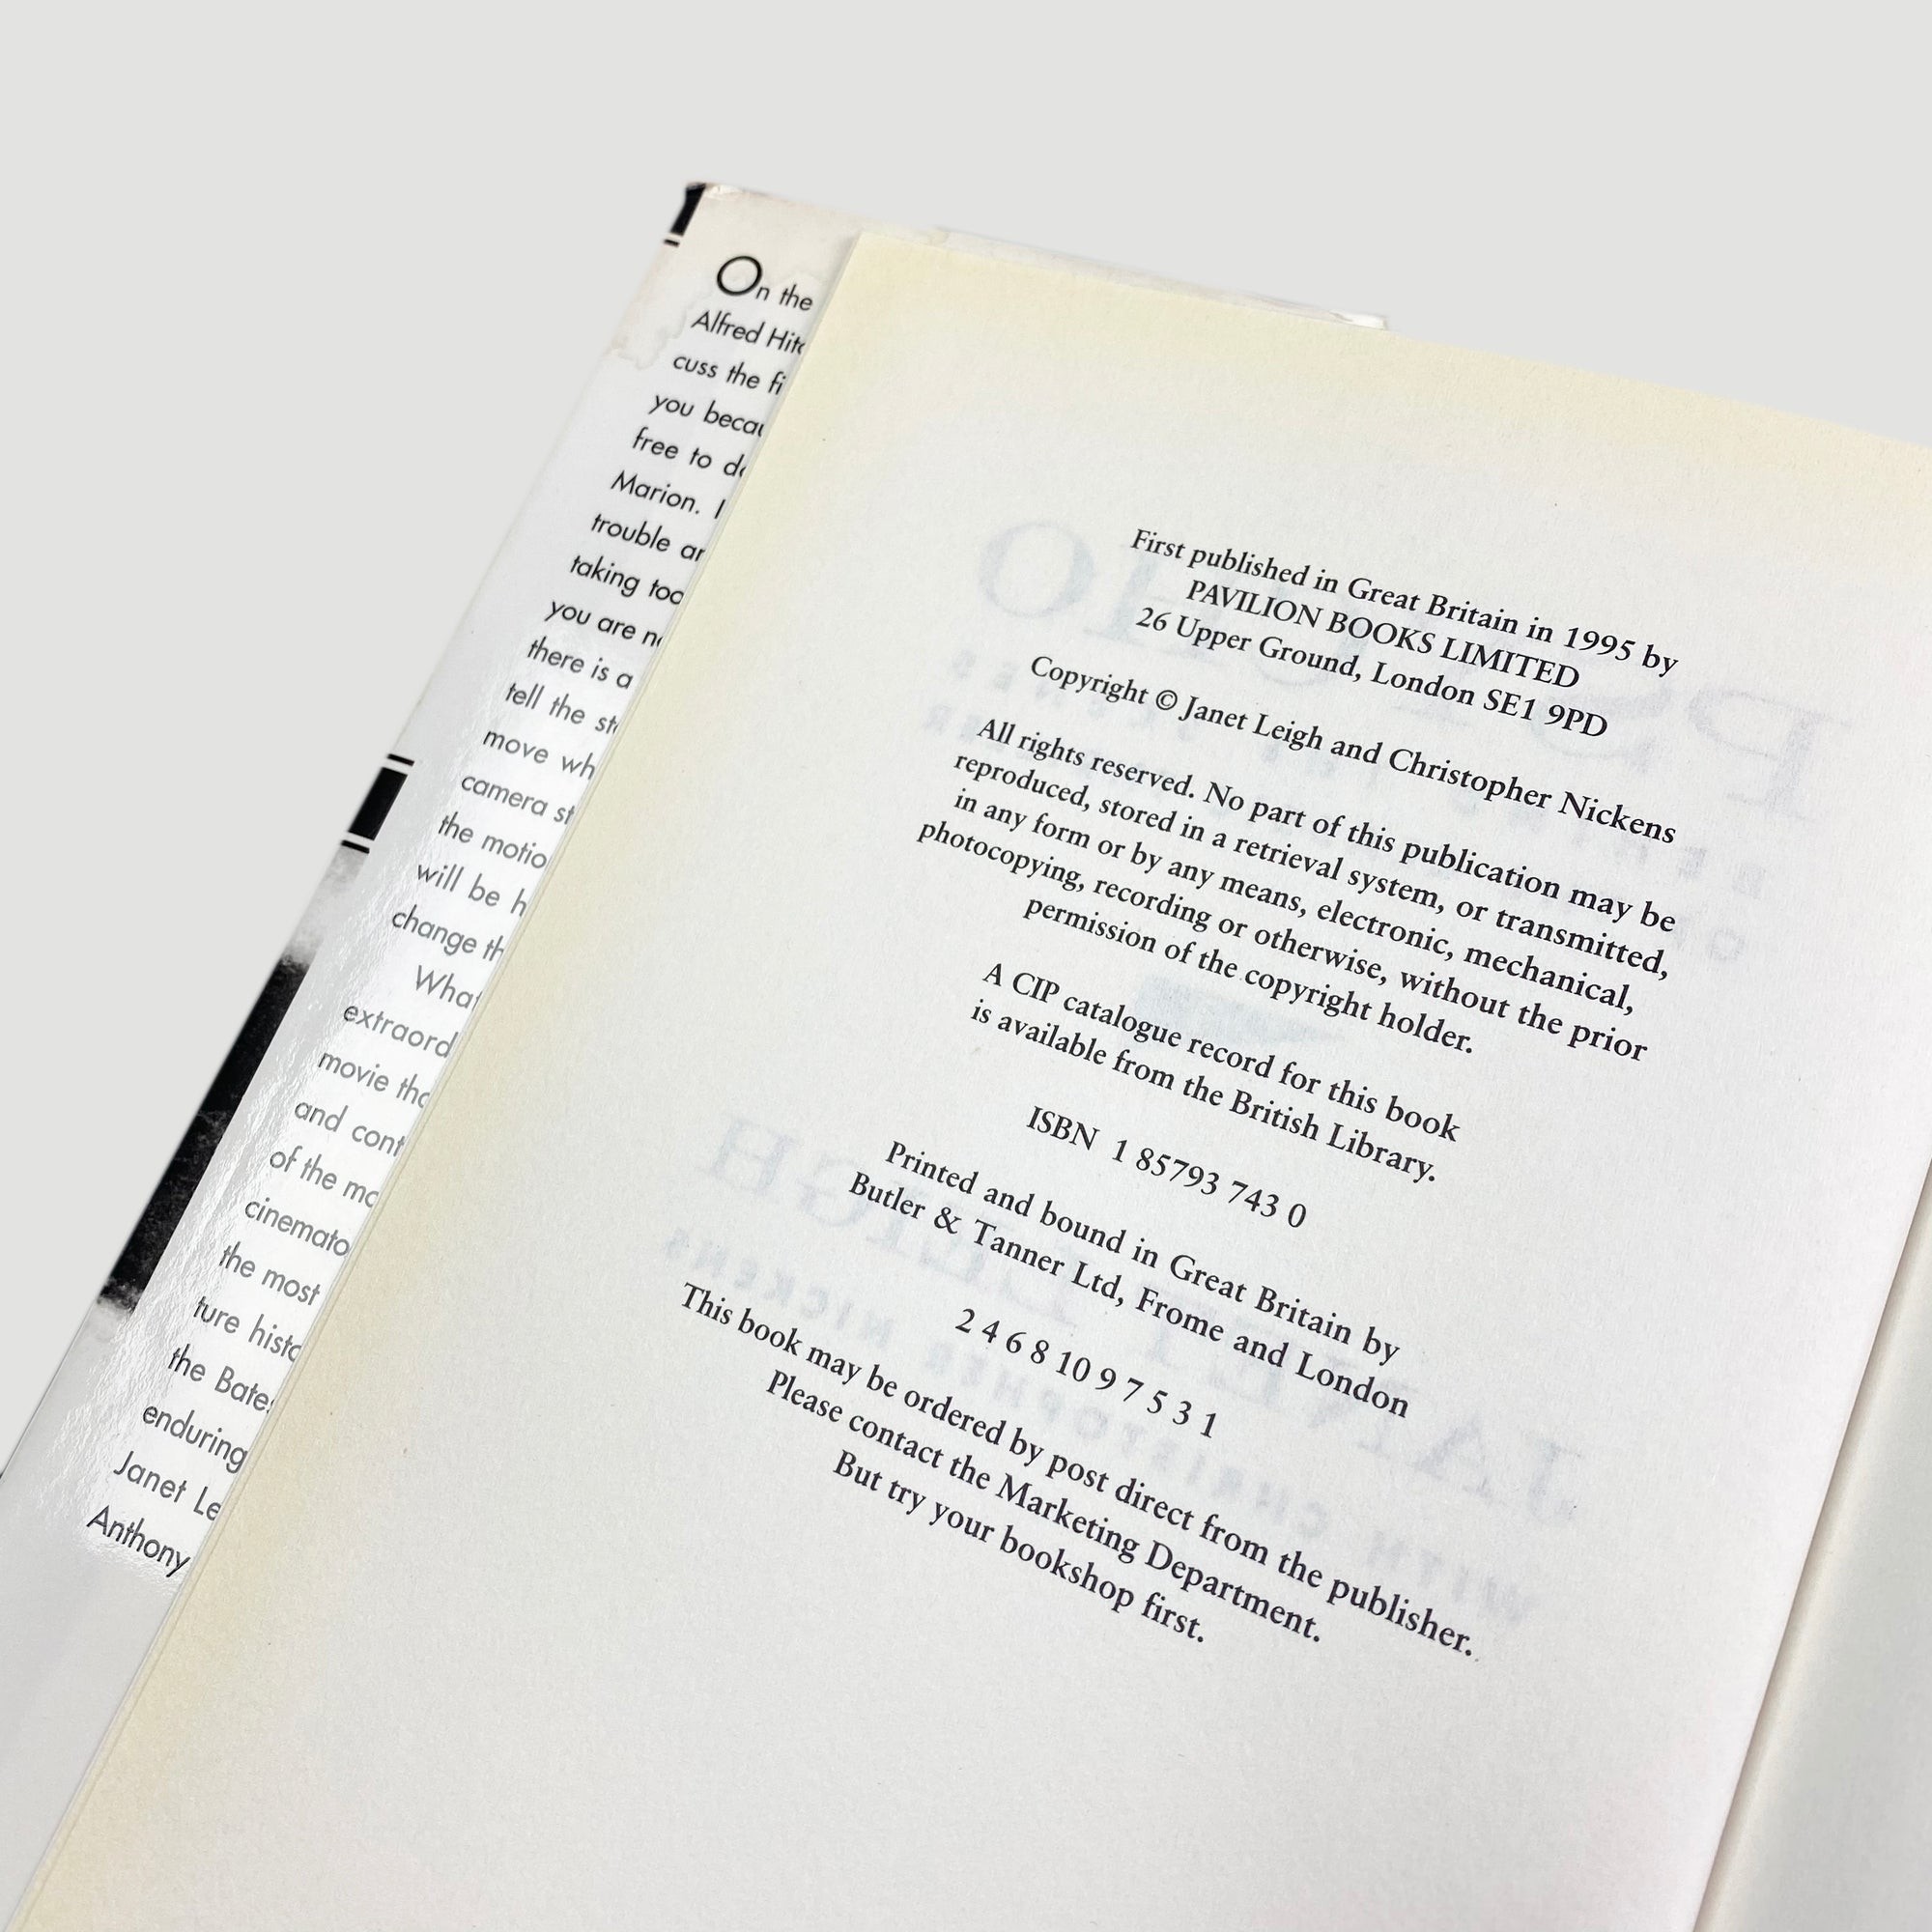 On the
Alfred Hitc
cuss the fi
you becau
free to do
Marion. I
trouble an
taking too
you are no
there is a
tell the sto
move wh
camera st
the motio
will be h
change th
What
extraord
movie tha
and cont
of the mo
cinemato
the most
ture histo
the Bates
enduring
Janet Le
Anthony
First published in Great Britain in 1995 by
PAVILION BOOKS LIMITED
26 Upper Ground, London SE1 9PD
Copyright © Janet Leigh and Christopher Nickens
All rights reserved. No part of this publication may be
reproduced, stored in a retrieval system, or transmitted,
in any form or by any means, electronic, mechanical,
photocopying, recording or otherwise, without the prior
permission of the copyright holder.
A CIP catalogue record for this book
is available from the British Library.
ISBN 1 85793 743 0
Printed and bound in Great Britain by
Butler & Tanner Ltd, Frome and London
2 4 6 8 10 9 7 5 3 1
This book may be ordered by post direct from the publisher.
Please contact the Marketing Department.
But try your bookshop first.